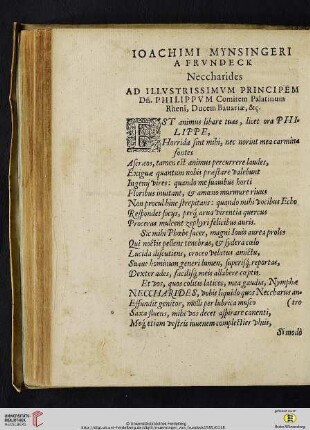 IOACHIMI MYNSINGERI
A FRVNDECK
Neccharides
AD ILLVSTRISSIMVM PRINCIPEM
Dñ. PHILIPPVM Comitem Palatinum
Rheni, Ducem Bauariæ, &c.
EST animus libare tuas, licet ora PHI-
LIPPE,
Horrida sint mihi, nec norint mea carmina
fontes
Ascræos, tamen est animus percurrere laudes,
Exiguæ quantum nobis præstare valebunt
Ingenÿ vires: quando me suauibus horti
Floribus inuitant, & amœno murmure riuus
Non procul hinc strepitans: quando mihi vocibus Echo
Respondet sacris, perq́ arua virentia quercus
Proceras mulcent zephyri felicibus auris.
Sic mihi Phœbe fauer, magni Iouis aurea proles
Qui noctis pellens tenebras, & sydera cœlo
Lucida discutiens, croceo velatus amictu,
Suaue hominum generi lumen, superisq́ reportas,
Dexter ades, facilisq́ meis allabere cœptis.
Et vos, quas colitis latices, mea gaudia, Nymphæ
NECCHARIDES, vobis liquido quos Neccharus an-
Effundit genitor, molli per lubrica musco (tro
Saxa fluens, mihi vos decet aspirare canenti,
Meq́ etiam vestris iuuenem complectier vlnis,
Si modò
UNIVERSITÄTS-
BIBLIOTHEK
HEIDELBERG
© Universitätsbibliothek Heidelberg